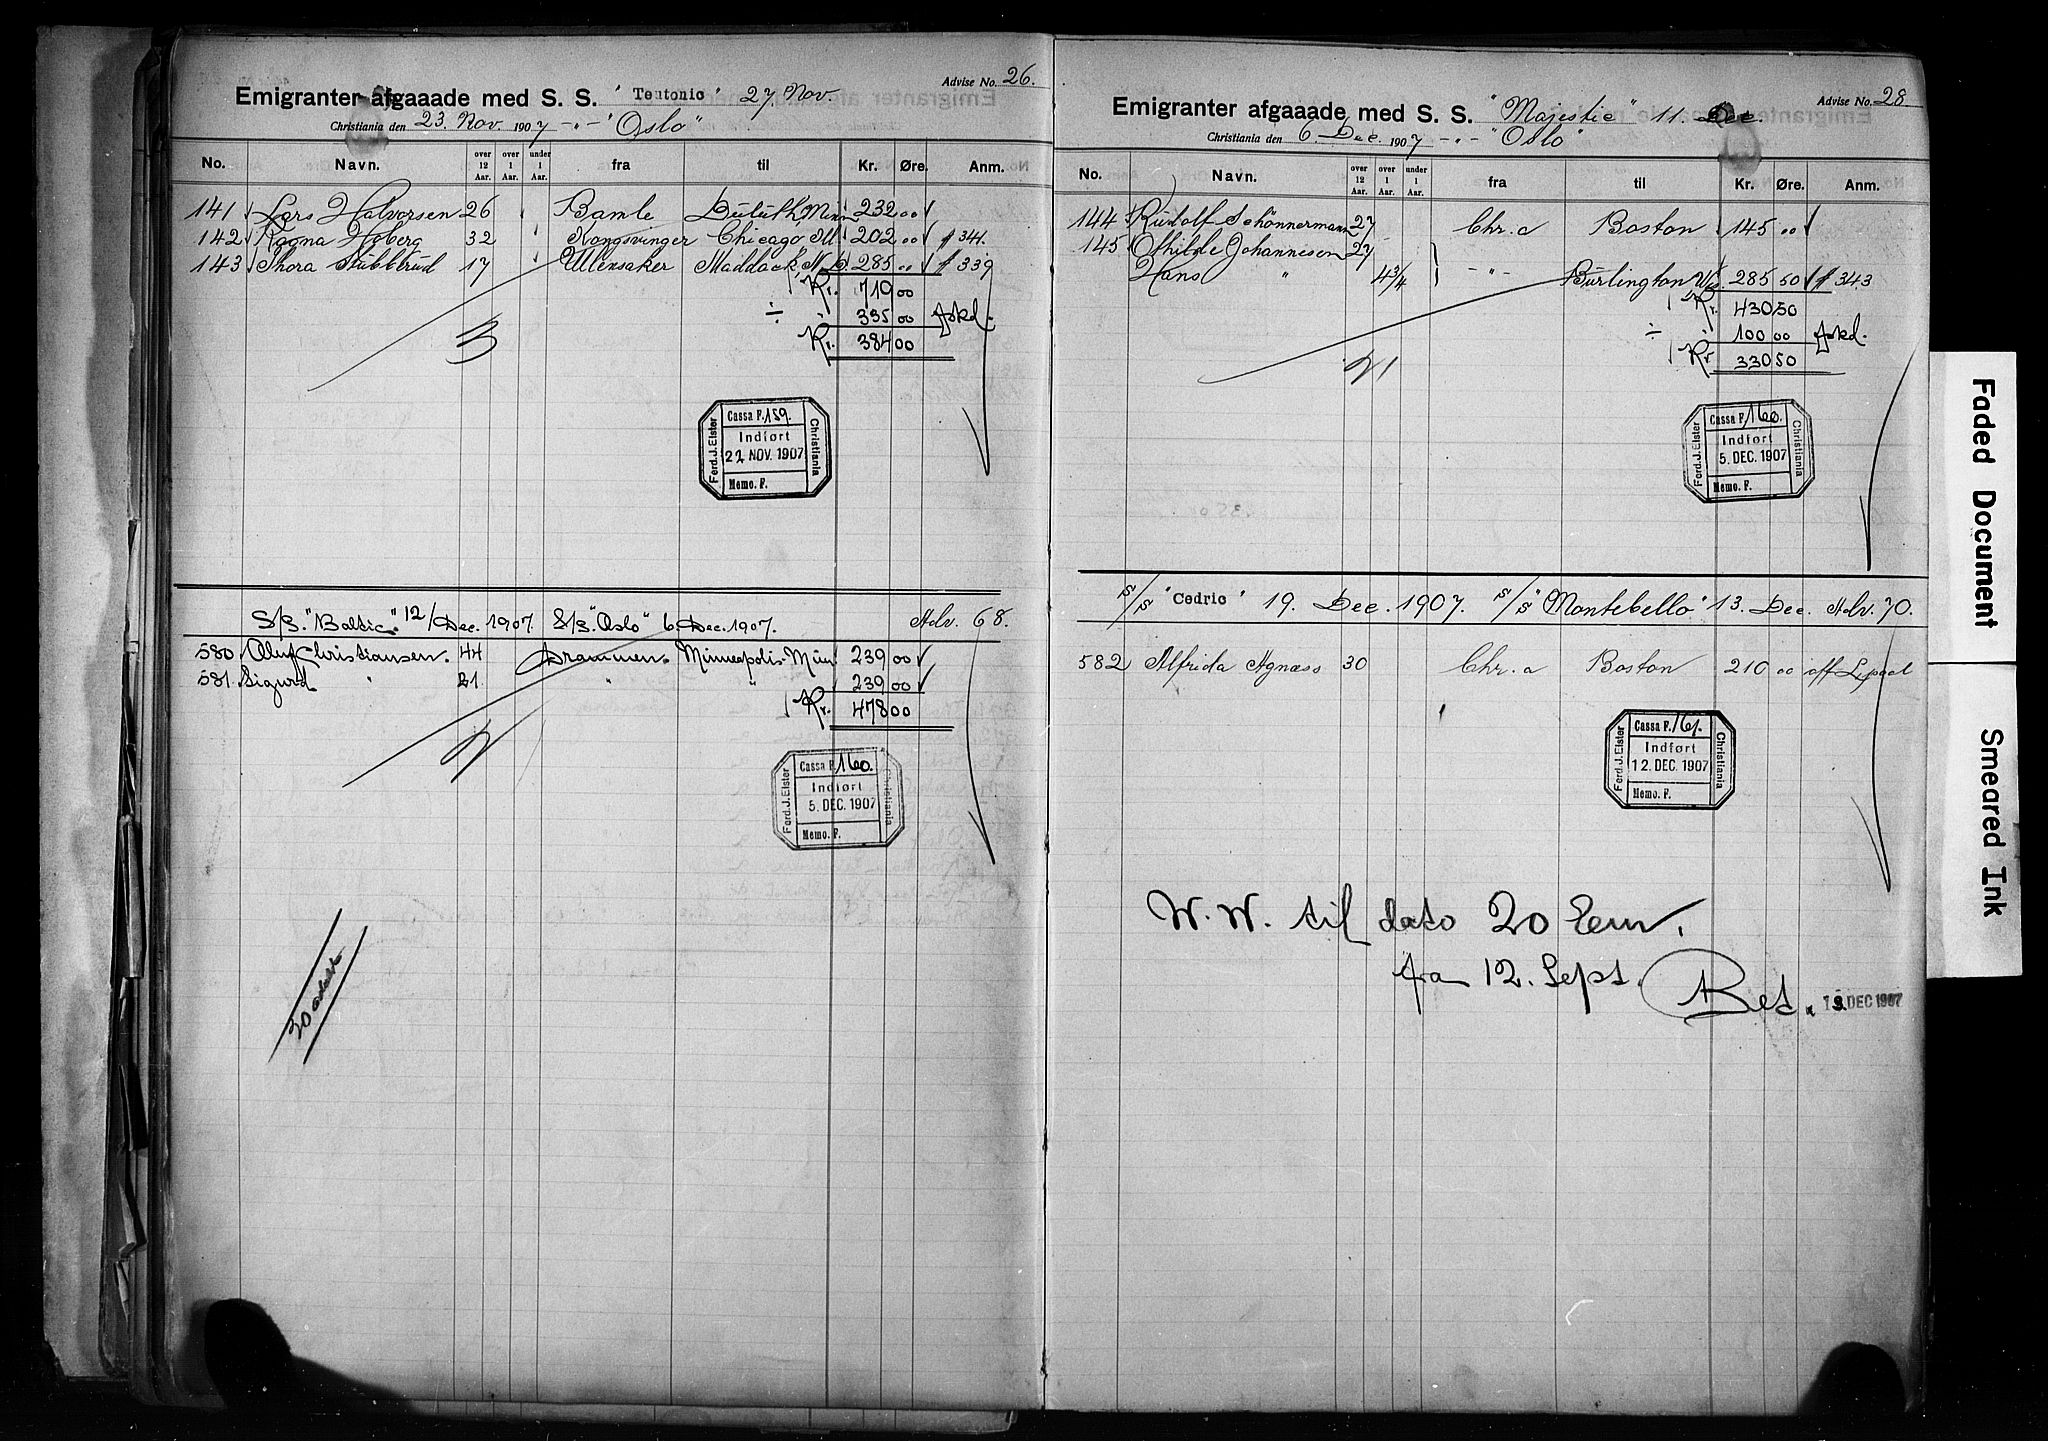 Advise No. 26.
Emigranter afgaaade med S. S. "Teutonic" 27 Nov.
Christiania den 23. Nov. 1907 -"- "Oslo"
No. Navn. over 12 Aar. over 1 Aar. under 1 Aar. fra til Kr. Øre. Anm.
141 Lars Halvorsen 26 Bamle Duluth, Minn 232 00
142 Ragna Hoberg 32 Kongsvinger Chicago, Ill. 202 00 # 341.
143 Thora Stubberud 17 Ullensaker Maddock, N. D. 285 " # 339
Kr. 719 00
÷ " 335 00 Askd.
3 Kr. 384 00
Ferd. J. Elster Christiania
Cassa F. 159.
Indført
22 NOV. 1907
Memo. F.
S/S. "Baltic" 12/Dec. 1907. S/S. "Oslo" 6 Dec. 1907. Adv. 68.
580 Oluf Christiansen. 44 Drammen. Minneapolis. Minn 239 00
581. Sigurd " 21 " " 239 00
Kr. 478 00
2
Ferd. J. Elster Christiania
Cassa F. 160.
Indført
5. DEC. 1907
Memo. F.
20 adskte
Advise No. 28
Emigranter afgaaade med S. S. "Majestic" 11. Dec.
Christiania den 6. Dec. 1907 -"- "Oslo"
No. Navn. over 12 Aar. over 1 Aar. under 1 Aar. fra til Kr. Øre. Anm.
144 Rudolf Schönnermann 27 Chr.a Boston 145 00
145 Othilde Johannesen 27
Hans " 4 3/4 -"- Burlington Wis. 285 50 # 343
Kr. 430 50
÷ " 100 00 Askd.
2/1 Kr 330 50
Ferd. J. Elster Christiania
Cassa F. 160.
Indført
5. DEC. 1907
Memo. F.
S/S "Cedric" 19. Dec. 1907. S/S "Montebello" 13. Dec. Adv. 70.
582 Alfrida Agnæss 30 Chr.a Boston 210 00 off Lpool
Ferd. J. Elster Christiania
Cassa F. 161.
Indført
12. DEC. 1907
Memo. F.
W. W. til dato 20 Eem.
fra 12. Sept. Bet. 13. DEC 1907
Faded Document
Smeared Ink